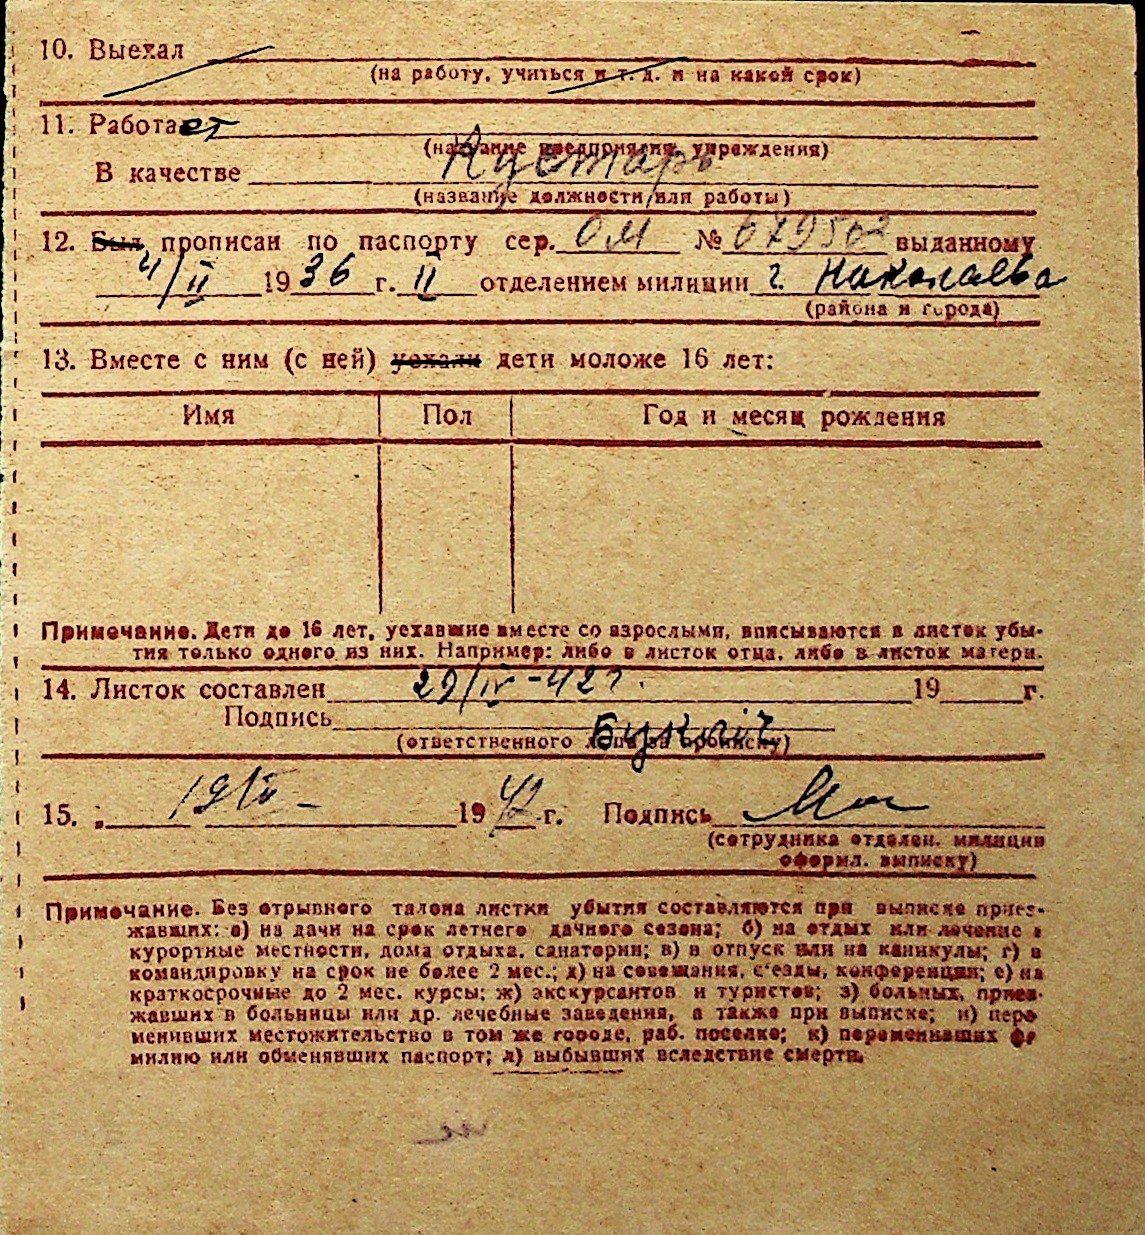 10. Выехал
(на работу, учиться и т. д. и на какой срок)
11. Работает
(название предприятия, учреждения)
В качестве Кустарь
(название должности или работы)
12. Был прописан по паспорту сер. ОМ № 679502 выданному
4/II 1936 г. II отделением милиции г. Николаева
(района и города)
13. Вместе с ним (с ней) уехали дети моложе 16 лет:
Имя Пол Год и месяц рождения
Примечание. Дети до 16 лет, уехавшие вместе со взрослыми, вписываются в листок убы-
тия только одного из них. Например: либо в листок отца, либо в листок матери.
14. Листок составлен 29/IV-42 г. 19 г.
Подпись
(ответственного лица за прописку)
15. „ 1942 г. Подпись
(сотрудника отделен. милиции
оформл. выписку)
Примечание. Без отрывного талона листки убытия составляются при выписке приез-
жавших: а) на дачи на срок летнего дачного сезона; б) на отдых или лечение в
курортные местности, дома отдыха, санатории; в) в отпуск или на каникулы; г) в
командировку на срок не более 2 мес.; д) на совещания, с'езды, конференции; е) на
краткосрочные до 2 мес. курсы; ж) экскурсантов и туристов; з) больных, приез-
жавших в больницы или др. лечебные заведения, а также при выписке; и) пере
менивших местожительство в том же городе, раб. поселке; к) переменивших фа
милию или обменявших паспорт; л) выбывших вследствие смерти.